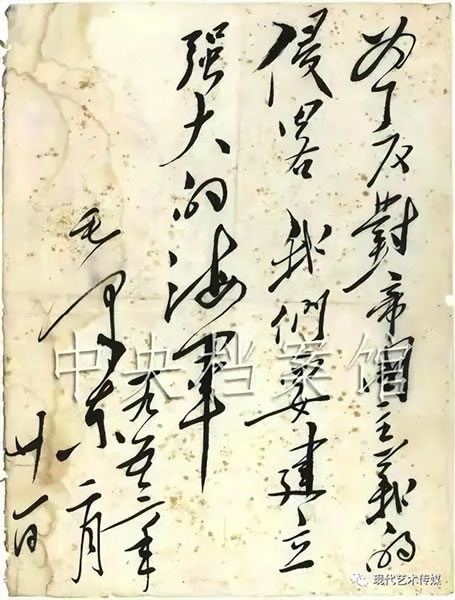 为了反對帝國主義的
侵畧 我們要建立
强大的海軍
毛泽东
一九五三年
二月
廿一日
中央档案馆
现代艺术传媒